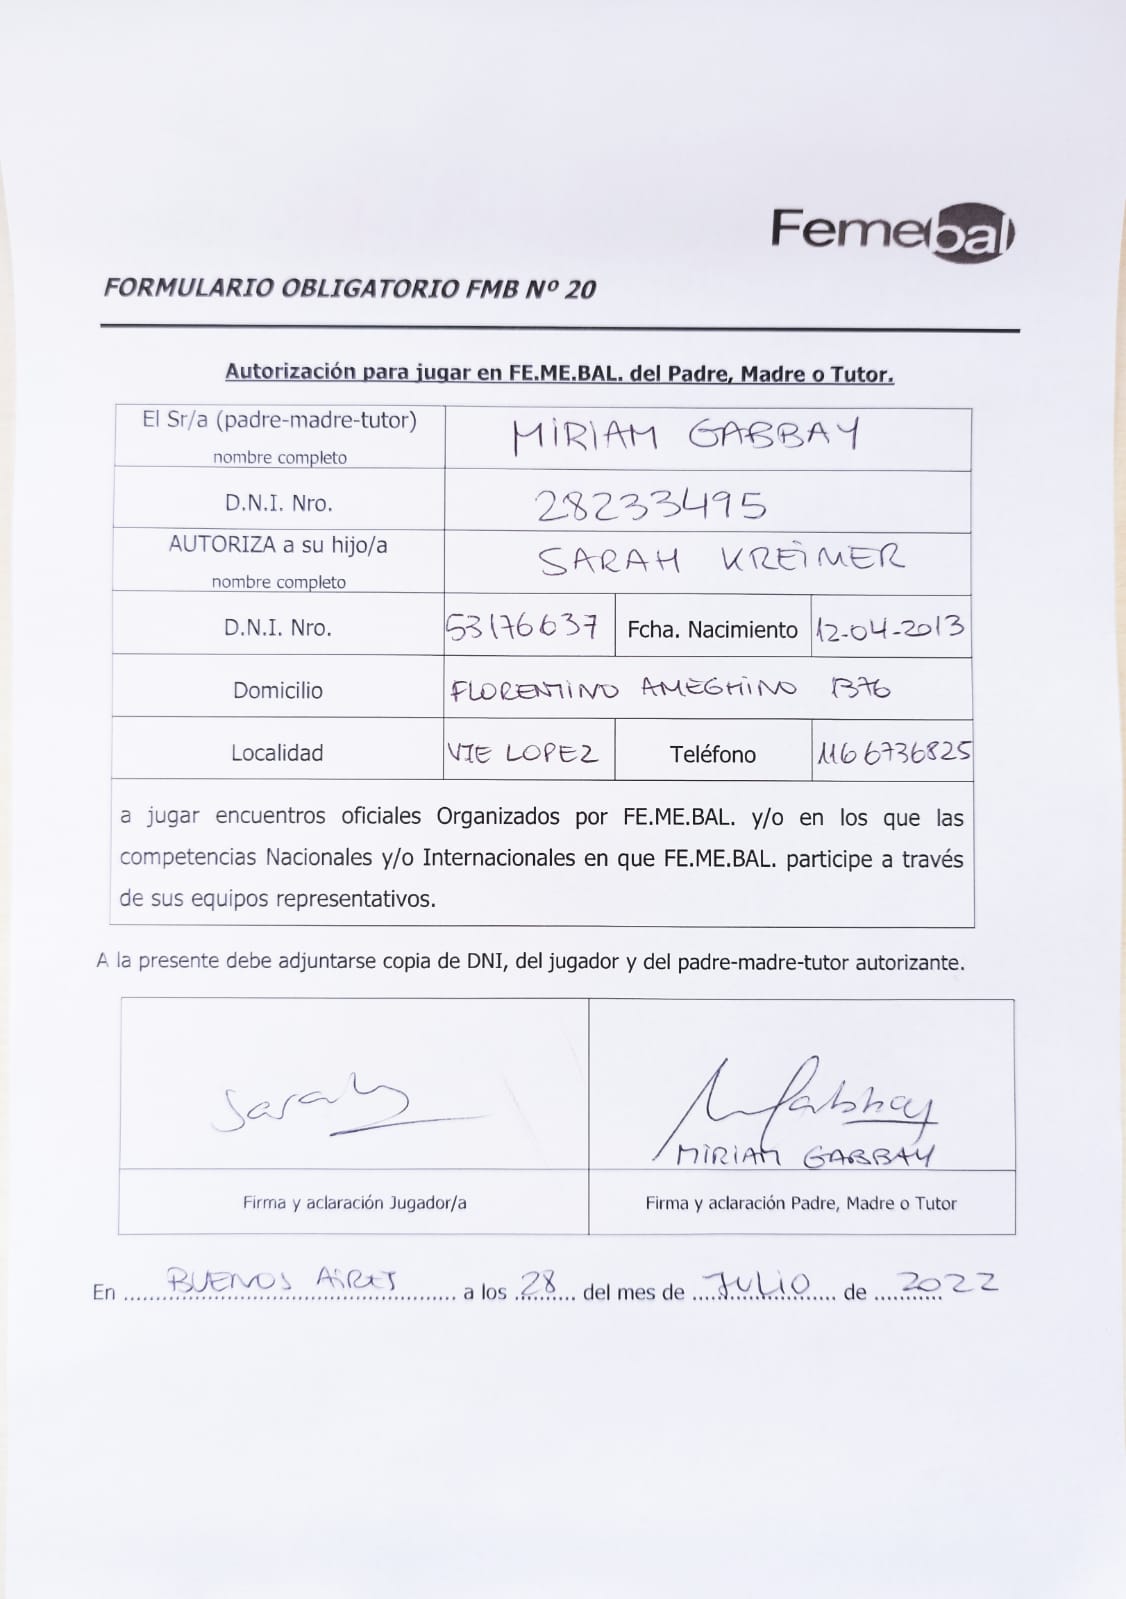 Femebal
FORMULARIO OBLIGATORIO FMB Nº 20
Autorización para jugar en FE.ME.BAL. del Padre, Madre o Tutor.
El Sr/a (padre-madre-tutor) nombre completo MIRIAM GABBAY
D.N.I. Nro. 28233495
AUTORIZA a su hijo/a nombre completo SARAH KREIMER
D.N.I. Nro. 53176637 Fcha. Nacimiento 12-04-2013
Domicilio FLORENTINO AMEGHINO 1376
Localidad VTE LOPEZ Teléfono 1166736825
a jugar encuentros oficiales Organizados por FE.ME.BAL. y/o en los que las
competencias Nacionales y/o Internacionales en que FE.ME.BAL. participe a través
de sus equipos representativos.
A la presente debe adjuntarse copia de DNI, del jugador y del padre-madre-tutor autorizante.
Sarah MGabbay
MIRIAM GABBAY
Firma y aclaración Jugador/a Firma y aclaración Padre, Madre o Tutor
En BUENOS AIRES a los 28 del mes de JULIO de 2022